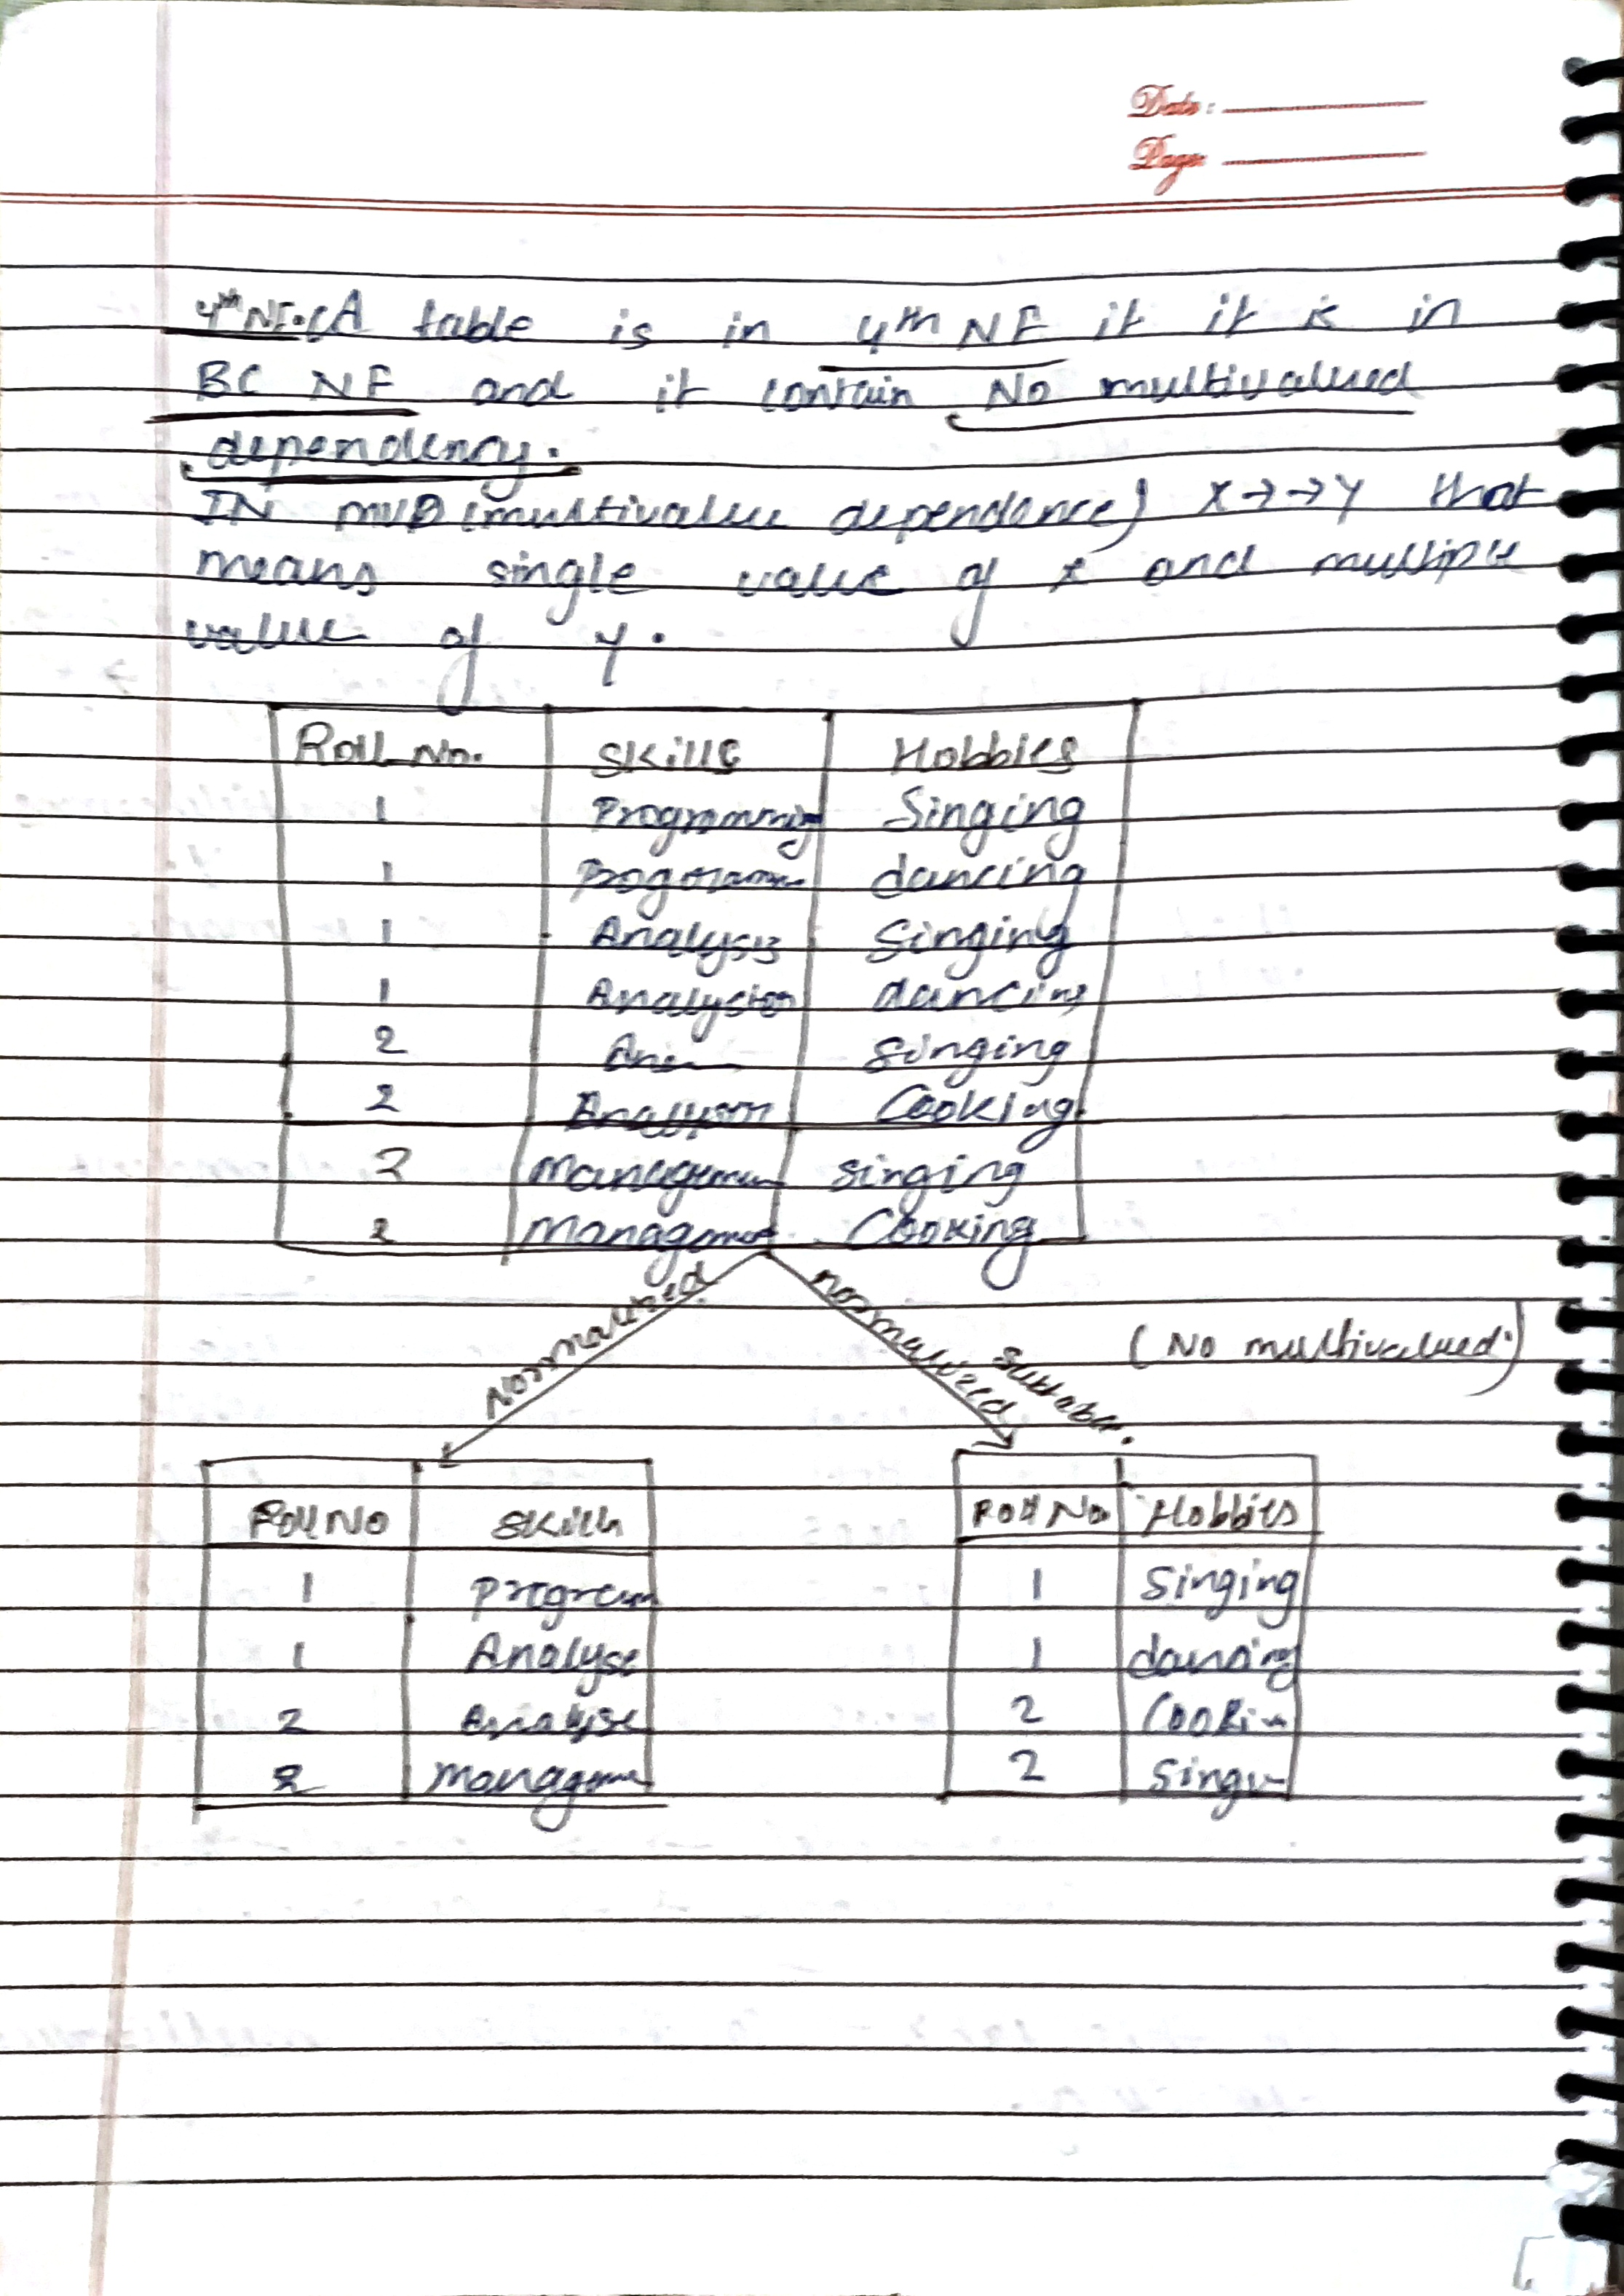 Date:
Page:
4th NF:(A table is in 4th NF if it is in
BC NF and it contain No multivalued
dependency.
IN MVD (multivalue dependance) X→→Y that
means single value of x and multiple
value of y.
Roll No. Skills Hobbies
1 Programming Singing
1 dancing
1 Analysis Singing
1 dancing
2 Singing
2 Cooking
2 Management singing
2 Management Cooking
normalized normalized
(No multivalued)
Roll No Skills
1 Program
1 Analyse
2 Analyse
2 Manageme
Roll No. Hobbies
1 Singing
1 dancing
2 Cookin
2 Singin